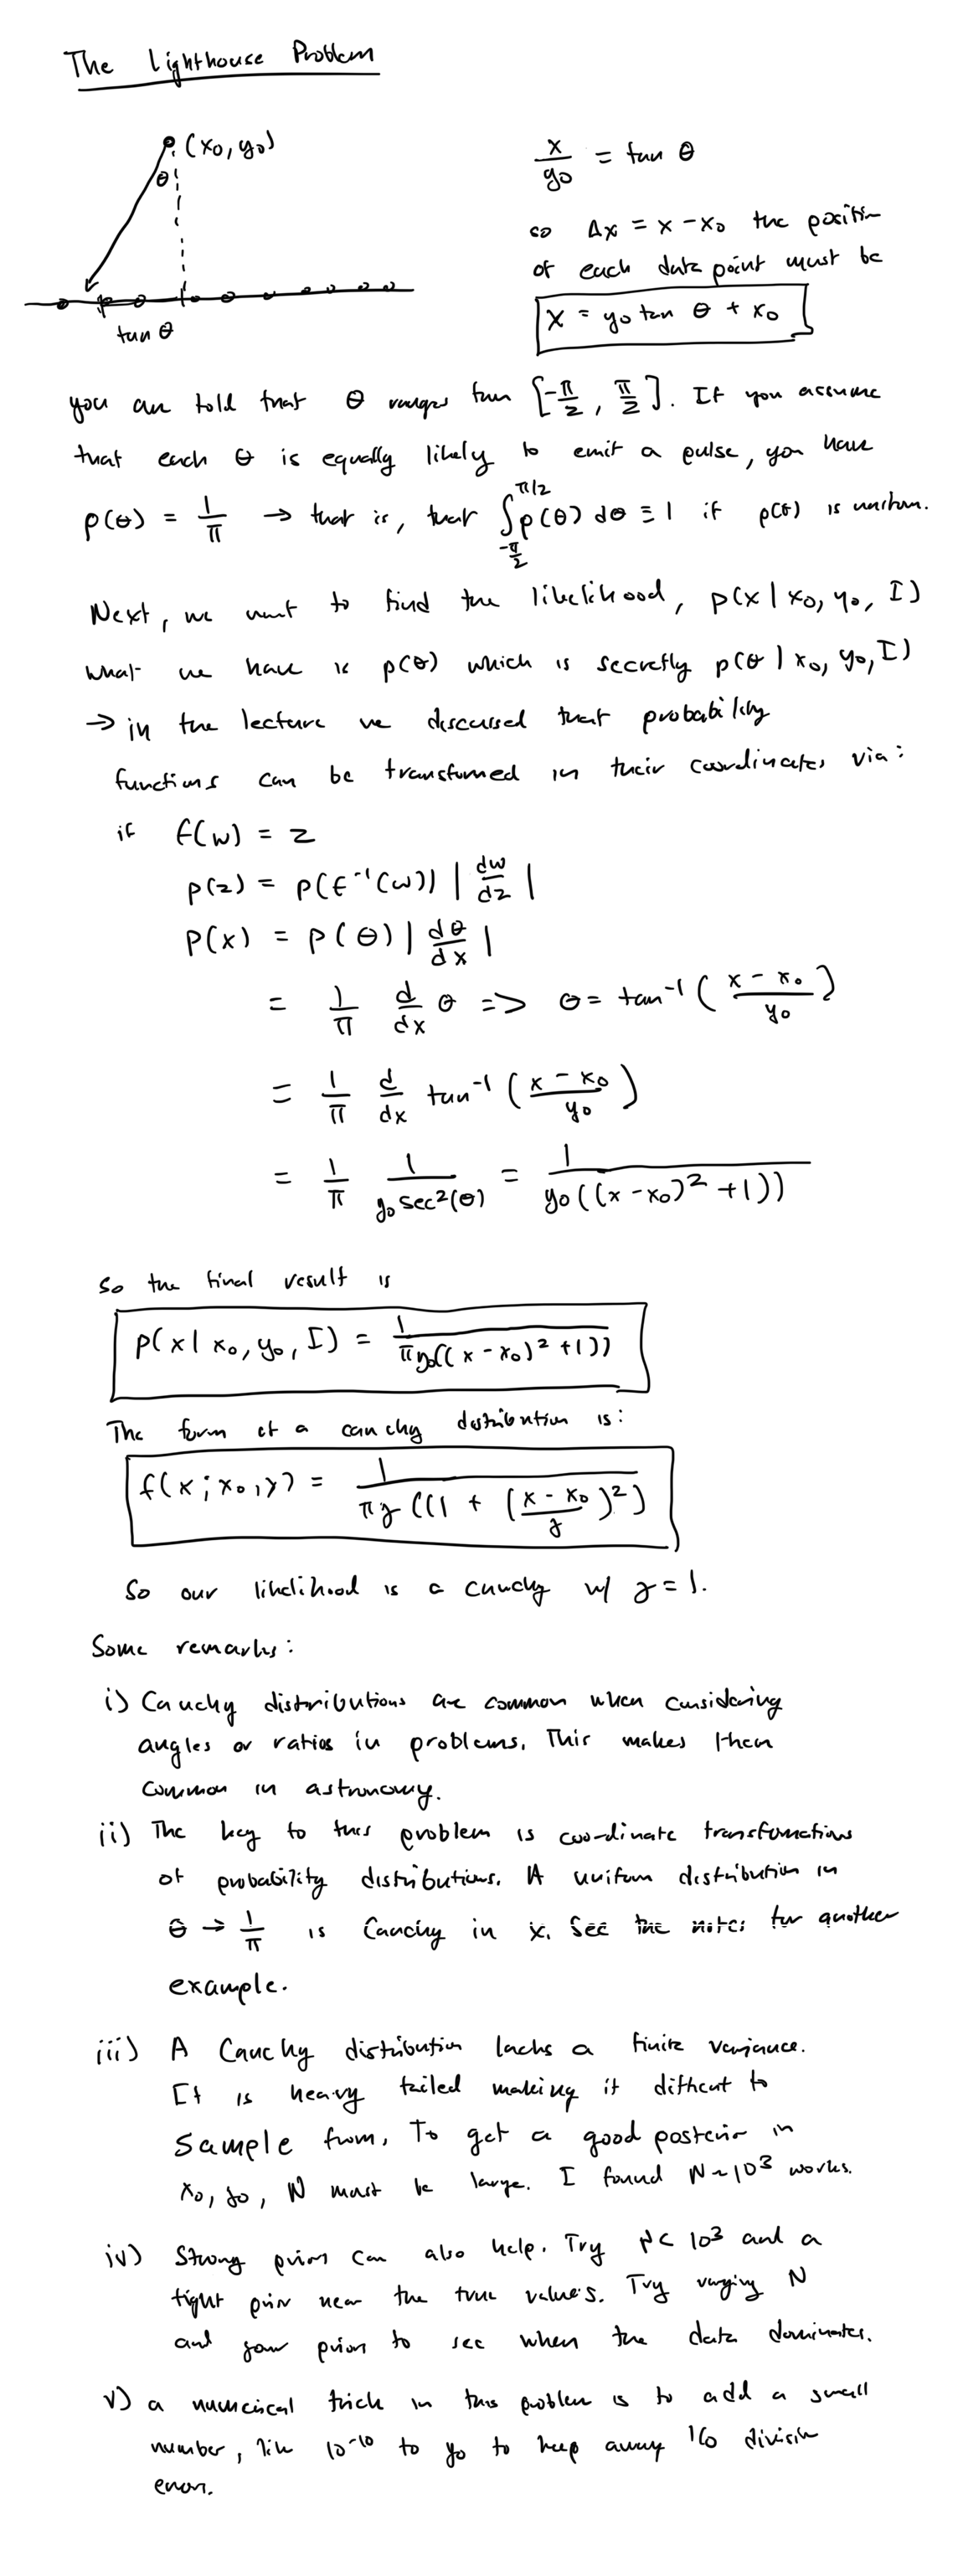 The Lighthouse Problem
(x0, y0)
θ
tan θ
x/y0 = tan θ
so Δx = x - x0 the position
of each data point must be
x = y0 tan θ + x0
you are told that θ ranges from [-π/2, π/2]. If you assume
that each θ is equally likely to emit a pulse, you have
p(θ) = 1/π → that is, that ∫_{-π/2}^{π/2} p(θ) dθ ≡ 1 if p(θ) is uniform.
Next, we want to find the likelihood, p(x | x0, y0, I)
what we have is p(θ) which is secretly p(θ | x0, y0, I)
→ in the lecture we discussed that probability
functions can be transformed in their coordinates via:
if f(w) = z
p(z) = p(f⁻¹(w)) | dw/dz |
p(x) = p(θ) | dθ/dx |
= 1/π d/dx θ => θ = tan⁻¹ ( (x - x0)/y0 )
= 1/π d/dx tan⁻¹ ( (x - x0)/y0 )
= 1/π 1/(y0 sec²(θ)) = 1/(y0((x - x0)² + 1))
So the final result is
p(x | x0, y0, I) = 1/(π y0((x - x0)² + 1))
The form of a cauchy distribution is:
f(x; x0, γ) = 1/(πγ ((1 + ((x - x0)/γ)²)
So our likelihood is a cauchy w/ γ = 1.
Some remarks:
i) Cauchy distributions are common when considering
angles or ratios in problems. This makes them
common in astronomy.
ii) The key to this problem is coordinate transformations
of probability distributions. A uniform distribution in
θ → 1/π is Cauchy in x. See the notes for another
example.
iii) A Cauchy distribution lacks a finite variance.
It is heavy tailed making it difficult to
sample from. To get a good posterior in
x0, y0, N must be large. I found N ~ 10³ works.
iv) Strong priors can also help. Try N < 10³ and a
tight prior near the true values. Try varying N
and your prior to see when the data dominates.
v) a numerical trick in this problem is to add a small
number, like 10⁻¹⁰ to y0 to keep away 1/0 division
errors.